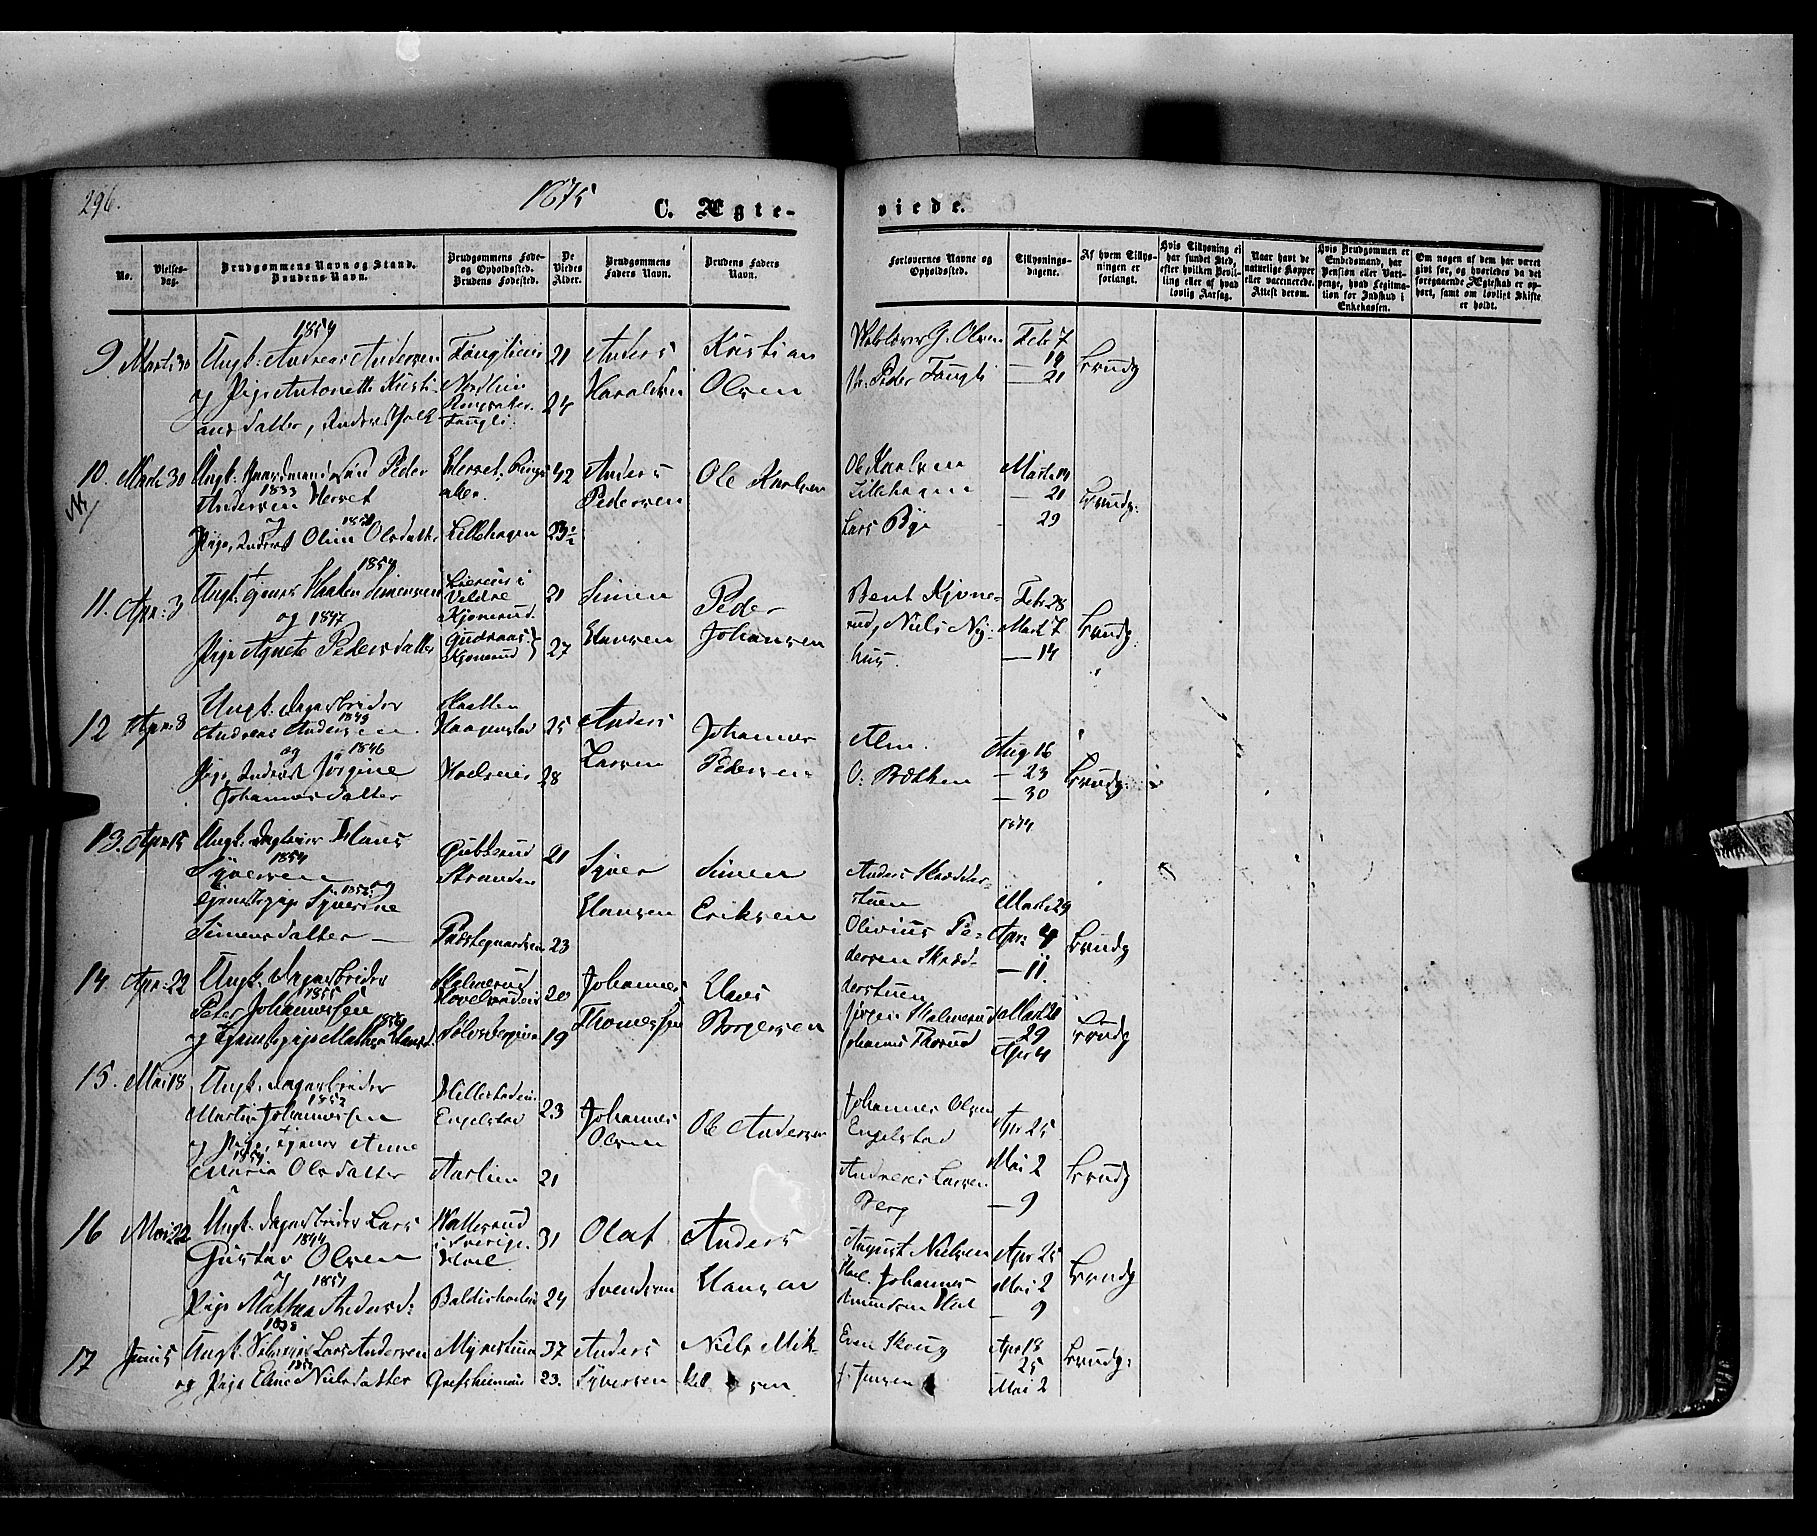 296.
1875
C. Ægte-
viede.
No.
Vielses-
dag.
Brudgommens Navn og Stand.
Brudens Navn.
Brudgommens Føde-
og Opholdssted.
Brudens Fødested.
De
Viedes
Alder.
Brudgommens
Faders Navn.
Brudens Faders
Navn.
Forlovernes Navne og
Opholdssted.
Tillysnings-
dagene.
Af hvem Tillys-
ningen er
forlangt.
Hvis Tillysning ei
har fundet Sted,
efter hvilken Bevil-
ling eller af hvad
lovlig Aarsag.
Naar havt de
naturlige Kopper
eller vaccinerede.
Attest derom.
Hvis Brudgommen er
Embedsmand, har
Pension eller Vart-
penge, hvad Legitima-
tion for Indskud i
Enkekassen.
Om nogen af dem har været
gift før, og hvorledes da det
foregaaende Ægteskab er op-
hørt, samt om lovligt Skifte
er holdt.
9 Marts 30
1854
Ungk. Andreas Andersen
og Pige Antonette Kristi-
ansdatter,
21
24
Anders
Haraldsen
Kristian
Olsen
G. Olsen
Peder Fougli
Febr 7
— 14
— 21
Brudg
10. Marts 30
Ungk. Gaardmandssøn Peder
1833
Andersen Hervet
og 1851
Pige, Inderst Oline Olsdatter
Lillehagen
42
23½
Anders
Pedersen
Ole Karlsen
Ole Karlsen
Lillehagen
Lars Bye
Marts 14
— 21
29
Brudg.
11. Apr. 3
1854
Ungk. tjener Haaken Simensen
og 1847
Pige Agnete Pedersdatter
Veldre
Kjonerud
Kjonerud
21
27
Simen
Hansen
Peder
Johansen
Bent Kjone-
rud, Niels Ny-
hus.
Febr 28
Marts 7
— 14
Brudg
12 Apr. 8
Ungk. Dagarbeider
1849
Andreas Andersen
og 1846
Pige, Inderst Jørgine
Johannesdatter
25
28
Anders
Larsen
Johannes
Pedersen
Alm.
O. Bækken
Aug. 16
— 23
— 30
1874
Brudg.
13. Apr. 15
Ungk. Hans
1854
Syversen og
1852
Tjenestepige Syverine
Simensdatter —
Stranden
Præstegaardseie
21
23
Syver
Hansen
Simen
Eriksen
Anders Skrædder-
stuen
Olivius Pe-
dersen Skræd-
derstuen
Marts 29
Apr. 4
— 11
Brudg
14 Apr. 22
Ungk. Dagarbeider
1855
Peter Johannessen
1856
og Tjenestepige Mathea Hansd.
20
19
Johannes
Thomassen
Hans
Borgersen
Jørgen
Johannes Thorud
Marts 20
29
Apr 4
Brudg
15. Mai 18
Ungk. Dagarbeider
1852
Martin Johannessen
og Pige, tjener Anne
1854
Maria Olsdatter
Engelstad
23
21
Johannes
Olsen
Ole Andersen
Johannes Olsen
Engelstad
Andreas Larsen
Berg
Apr 25
Mai 2
— 9
Brudg
16 Mai 22
Ungk. Dagarbeider Lars
1844
Gustav Olsen
og 1851
Pige Mathea Andersd:
i Sverige.
31
24
Olaf
Svendsen
Anders
Hansen
August Nielsen
Johannes
Amundsen
Apr 25
Mai 2
— 9
Brudg
17 Juni 5
1838
Ungk. Lars Andersen
1852
og Pige Eline Nielsdatter
Myrestuen
Grefsheimeie
37
23.
Anders
Syversen
Niels Mik-
kelsen
Even Skoug
J. Jensen
Apr 18
25
Mai 2
Brudg: